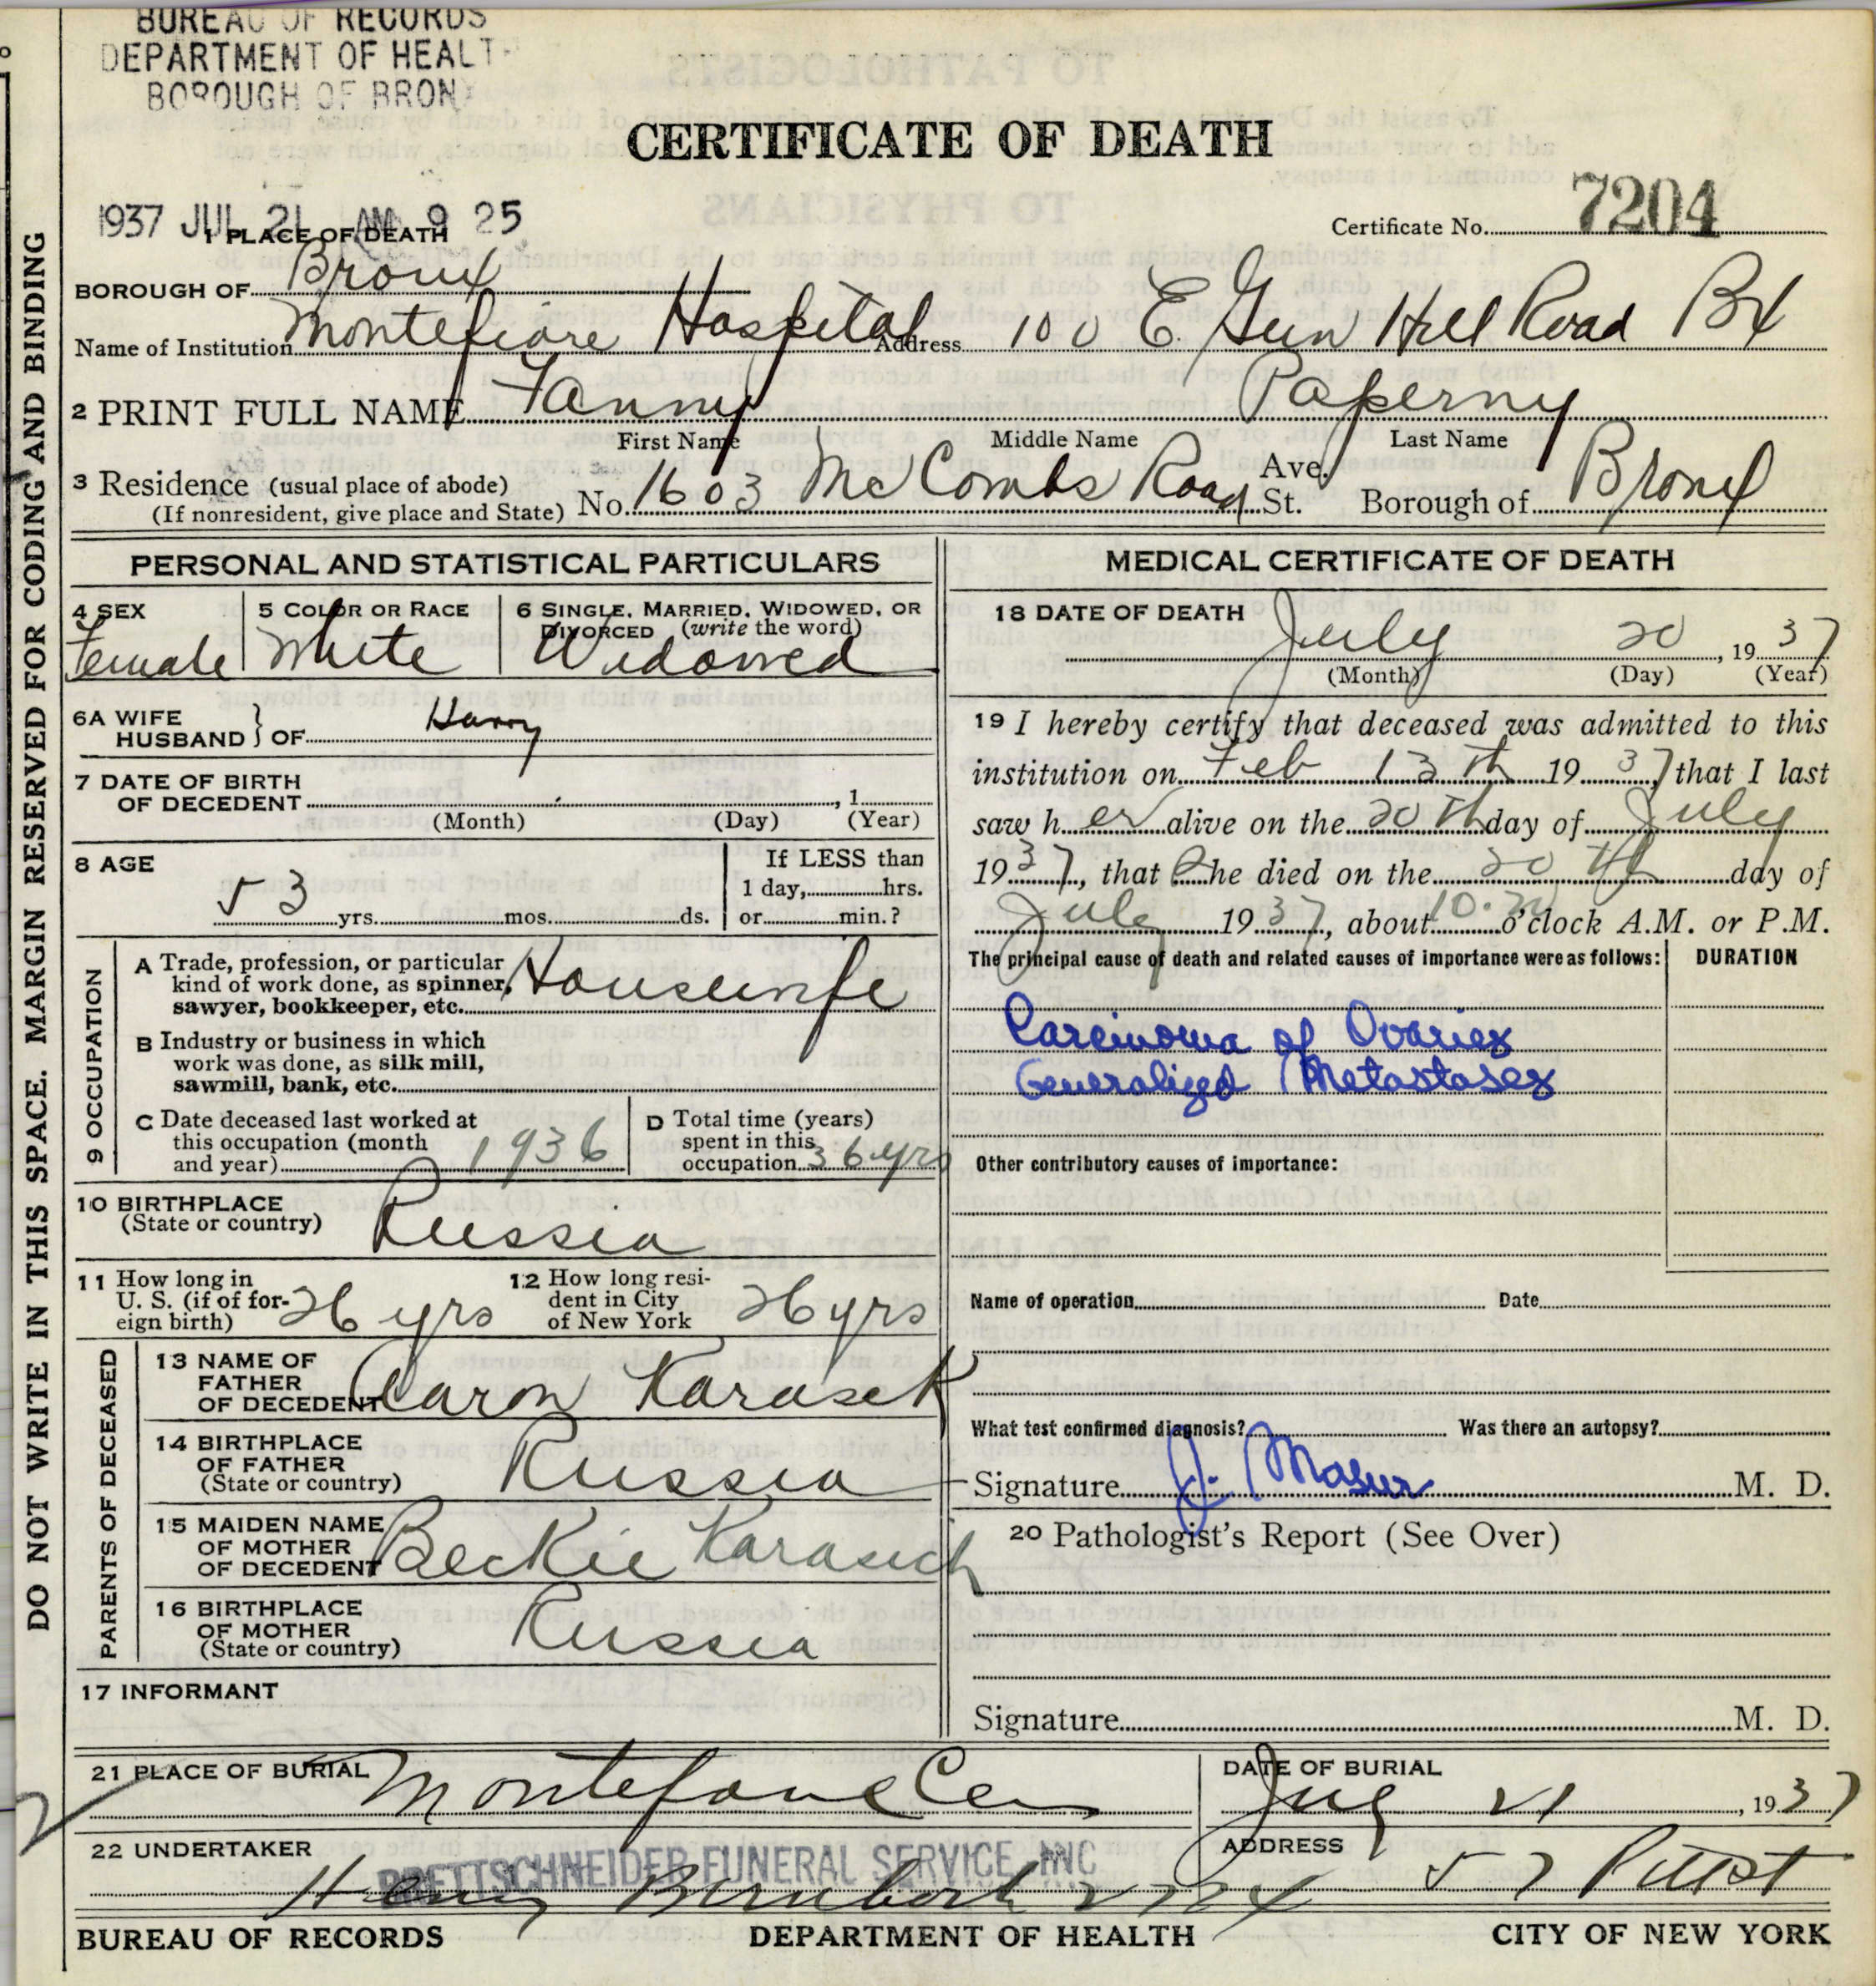 BUREAU OF RECORDS
DEPARTMENT OF HEALT
BOROUGH OF BRON
CERTIFICATE OF DEATH
1937 JUL 21 AM 9 25
Certificate No. 7204
1 PLACE OF DEATH
BOROUGH OF Bronx
Name of Institution Montefiore Hospital Address 100 E. Gun Hill Road Bx
2 PRINT FULL NAME Fanny Paperny
First Name Middle Name Last Name
3 Residence (usual place of abode) No. 1603 McCombs Road Ave. St. Borough of Bronx
(If nonresident, give place and State)
DO NOT WRITE IN THIS SPACE. MARGIN RESERVED FOR CODING AND BINDING
PERSONAL AND STATISTICAL PARTICULARS
4 SEX 5 COLOR OR RACE 6 SINGLE, MARRIED, WIDOWED, OR
DIVORCED (write the word)
Female White Widowed
6A WIFE
HUSBAND } OF Harry
7 DATE OF BIRTH
OF DECEDENT , 1
(Month) (Day) (Year)
8 AGE If LESS than
1 day, hrs.
53 yrs. mos. ds. or min.?
9 OCCUPATION
A Trade, profession, or particular
kind of work done, as spinner, Housewife
sawyer, bookkeeper, etc.
B Industry or business in which
work was done, as silk mill,
sawmill, bank, etc.
C Date deceased last worked at
this occupation (month
and year) 1936
D Total time (years)
spent in this
occupation 36 yrs
10 BIRTHPLACE
(State or country) Russia
11 How long in
U. S. (if of for-
eign birth) 26 yrs
12 How long resi-
dent in City
of New York 26 yrs
PARENTS OF DECEASED
13 NAME OF
FATHER
OF DECEDENT Aaron Karasek
14 BIRTHPLACE
OF FATHER
(State or country) Russia
15 MAIDEN NAME
OF MOTHER
OF DECEDENT Beckie Karasich
16 BIRTHPLACE
OF MOTHER
(State or country) Russia
17 INFORMANT
MEDICAL CERTIFICATE OF DEATH
18 DATE OF DEATH
July 20, 1937
(Month) (Day) (Year)
19 I hereby certify that deceased was admitted to this
institution on Feb 13th 1937, that I last
saw her alive on the 20th day of July
1937, that he died on the 20th day of
July 1937, about o'clock A.M. or P.M.
The principal cause of death and related causes of importance were as follows: DURATION
Carcinoma of Ovaries
Generalized Metastases
Other contributory causes of importance:
Name of operation Date
What test confirmed diagnosis? Was there an autopsy?
Signature J. Masur M. D.
20 Pathologist's Report (See Over)
Signature M. D.
21 PLACE OF BURIAL Montefiore Cem
DATE OF BURIAL
July 21, 1937
22 UNDERTAKER
BRETTSCHNEIDER FUNERAL SERVICE, INC
Henry
ADDRESS
57 Pitt St
BUREAU OF RECORDS DEPARTMENT OF HEALTH CITY OF NEW YORK